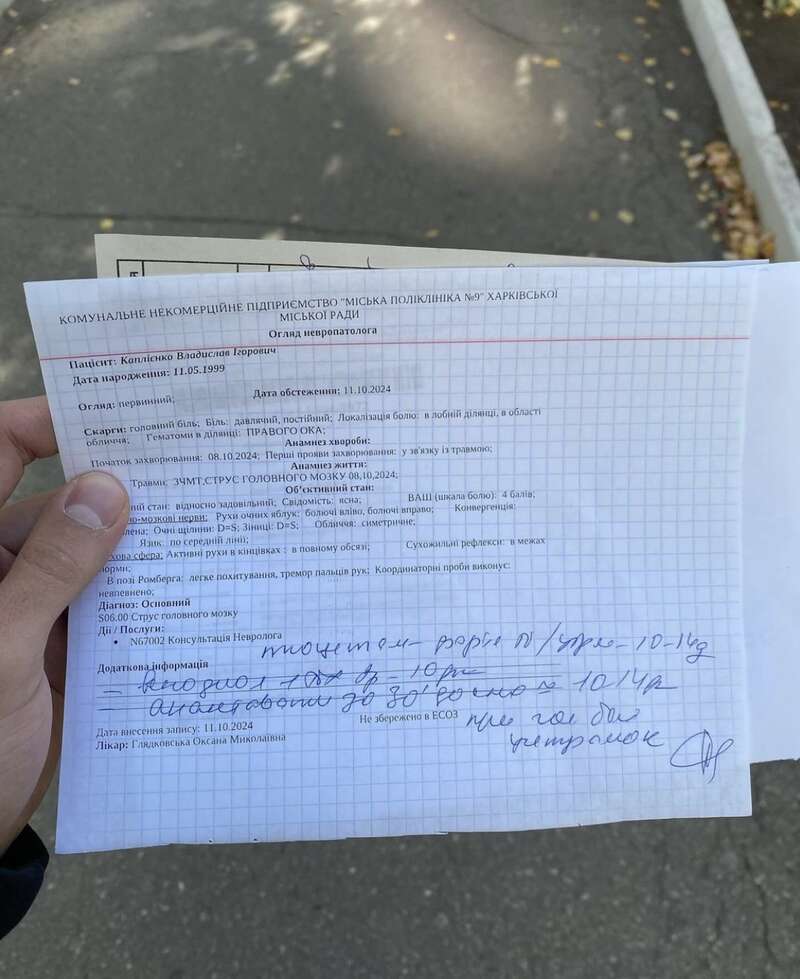 КОМУНАЛЬНЕ НЕКОМЕРЦІЙНЕ ПІДПРИЄМСТВО "МІСЬКА ПОЛІКЛІНІКА №9" ХАРКІВСЬКОЇ
МІСЬКОЇ РАДИ
Огляд невропатолога
Пацієнт: Каплієнко Владислав Ігорович
Дата народження: 11.05.1999
Огляд: первинний; Дата обстеження: 11.10.2024
Скарги: головний біль; Біль: давлячий, постійний; Локалізація болю: в лобній ділянці, в області
обличчя; Гематоми в ділянці: ПРАВОГО ОКА;
Анамнез хвороби:
Початок захворювання: 08.10.2024; Перші прояви захворювання: у зв'язку із травмою;
Анамнез життя:
Травми: ЗЧМТ,СТРУС ГОЛОВНОГО МОЗКУ 08,10,2024;
Об'єктивний стан:
стан: відносно задовільний; Свідомість: ясна; ВАШ (шкала болю): 4 балів;
нерви: Рухи очних яблук: болючі вліво, болючі вправо; Конвергенція:
Очні щілини: D=S; Зіниці: D=S; Обличчя: симетричне;
Язик: по середній лінії;
сфера: Активні рухи в кінцівках: в повному обсязі; Сухожильні рефлекси: в межах
норми;
В позі Ромберга: легке похитування, тремор пальців рук; Координаторні проби виконує:
невпевнено;
Діагноз: Основний
S06.00 Струс головного мозку
Дії / Послуги:
• N67002 Консультація Невролога
10-14д
Додаткова інформація
10 14
Не збережено в ЕСОЗ при гол болі
Дата внесення запису: 11.10.2024
Лікар: Глядковська Оксана Миколаївна